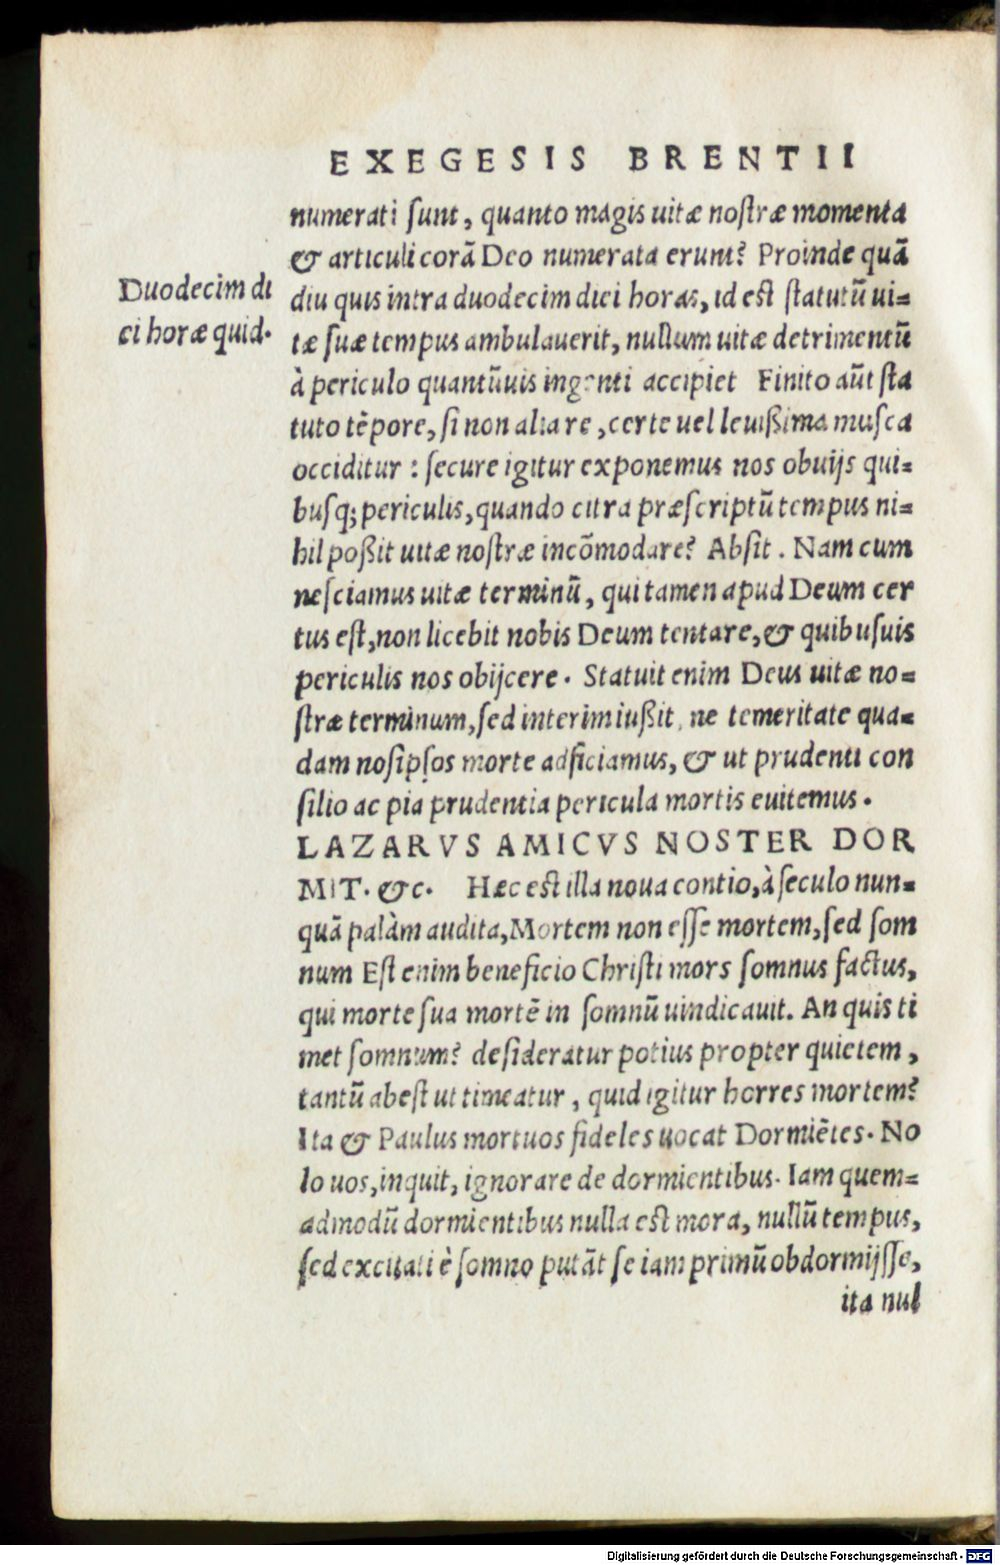 EXEGESIS BRENTII
numerati sunt, quanto magis uitæ nostræ momenta
& articuli corã Deo numerata erunt? Proinde quã
Duodecim di
ei horæ quid.
diu quis intra duodecim diei horas, id est statutũ ui=
tæ suæ tempus ambulauerit, nullum uitæ detrimentũ
à periculo quantũuis ingenti accipiet Finito aũt sta
tuto tẽpore, si non alia re, certe uel leuißima musca
occiditur : secure igitur exponemus nos obuijs qui=
busq; periculis, quando citra præscriptũ tempus ni=
hil poßit uitæ nostræ incõmodare? Absit. Nam cum
nesciamus uitæ terminũ, qui tamen apud Deum cer
tus est, non licebit nobis Deum tentare, & quibusuis
periculis nos obijcere. Statuit enim Deus uitæ no=
stræ terminum, sed interim iußit, ne temeritate qua=
dam nosipsos morte adficiamus, & ut prudenti con
silio ac pia prudentia pericula mortis euitemus.
LAZARVS AMICVS NOSTER DOR
MIT. &c. Hæc est illa noua contio, à seculo nun=
quã palàm audita, Mortem non esse mortem, sed som
num Est enim beneficio Christi mors somnus factus,
qui morte sua mortẽ in somnũ uindicauit. An quis ti
met somnum? desideratur potius propter quietem,
tantũ abest ut timeatur, quid igitur horres mortem?
Ita & Paulus mortuos fideles uocat Dormiẽtes. No
lo uos, inquit, ignorare de dormientibus. Iam quem=
admodũ dormientibus nulla est mora, nullũ tempus,
sed excitati è somno putãt se iam primũ obdormijsse,
ita nul
Digitalisierung gefördert durch die Deutsche Forschungsgemeinschaft - DFG